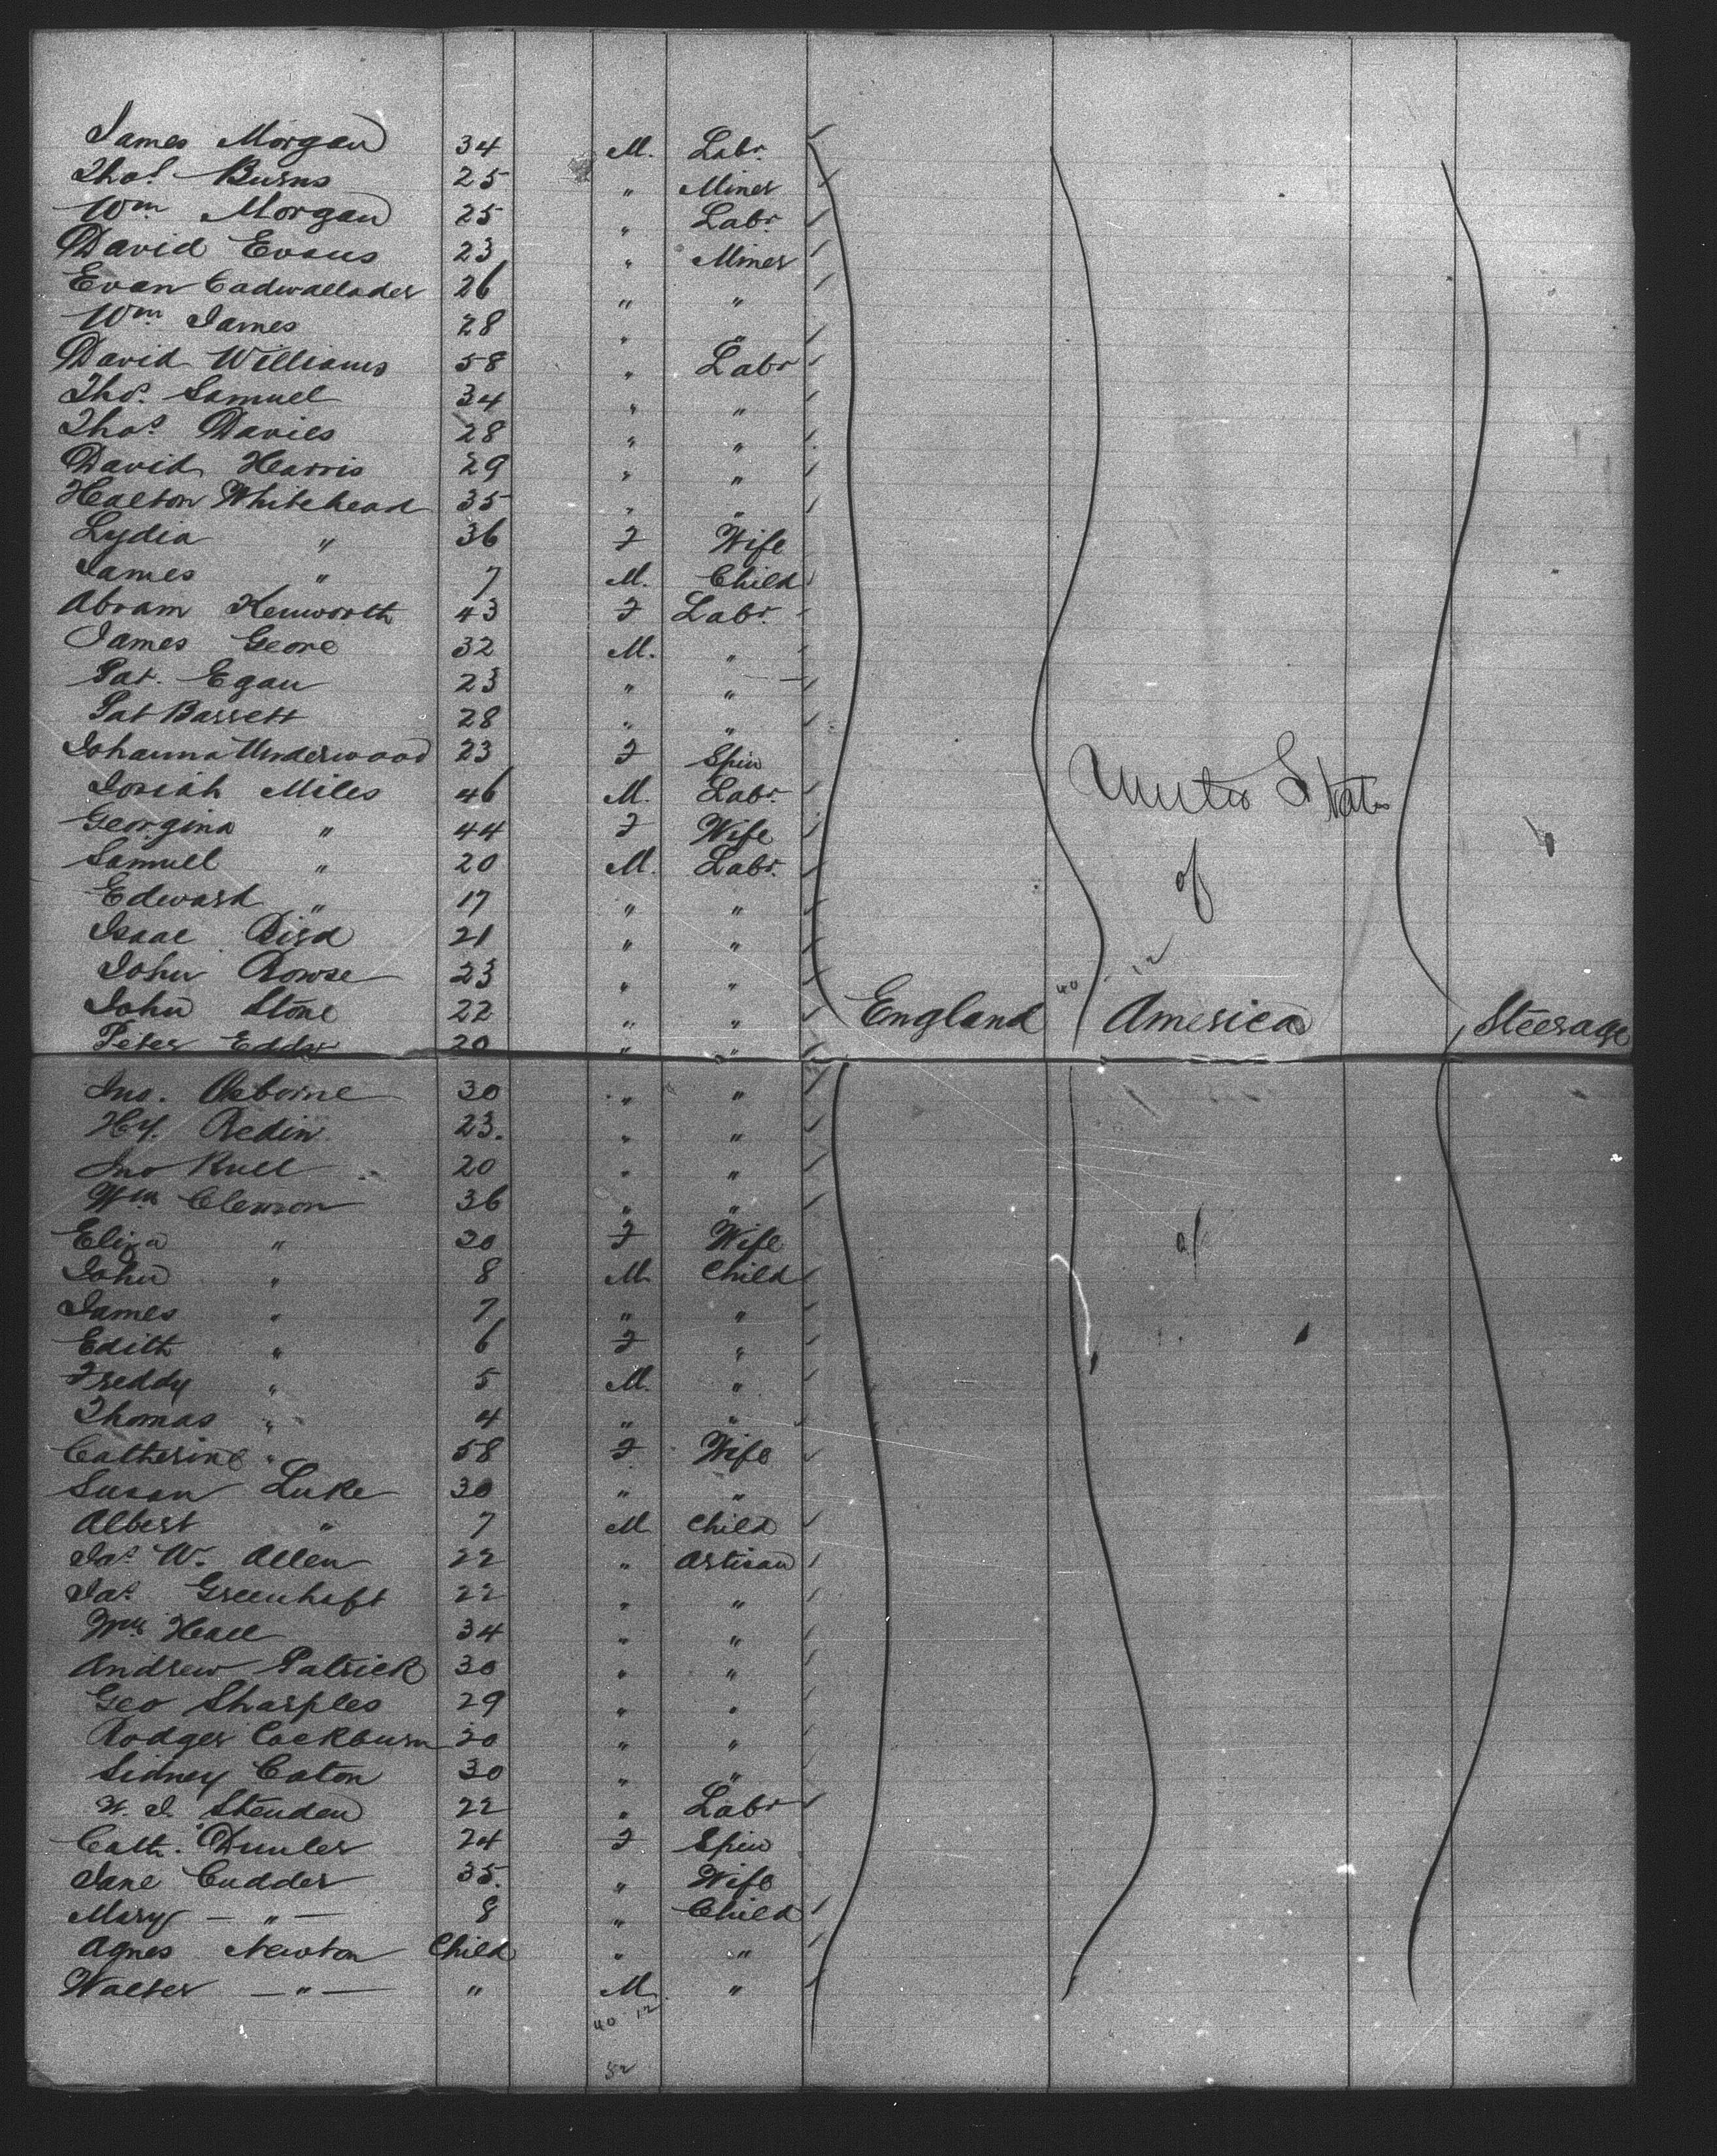 James Morgan 34 M. Labr.
Thos. Burns 25 " Miner
Wm Morgan 25 " Labr.
David Evans 23 " Miner
Evan Cadwallader 26 " "
Wm James 28 " "
David Williams 58 " Labr
Thos. Samuel 34 " "
Thos. Davies 28 " "
David Harris 29 " "
Healton Whitehead 35 " "
Lydia " 36 F Wife
James " 7 M. Child
Abram Kenworth 43 F Labr.
James Geore 32 M. "
Pat. Egan 23 " "
Pat Bassett 28 " "
Johanna Underwood 23 F Spin
Josiah Miles 46 M. Labr.
Georgina " 44 F Wife
Samuel " 20 M. Labr.
Edward " 17 " "
Isaac Bird 21 " "
John Rowse 23 " "
John Stone 22 " "
United States
of
England America Steerage
Peter Eddy 20 " "
Jno. Osborne 30 " "
Hy. Redin 23. " "
Jno Rull 20 " "
Wm Clemson 36 " "
Eliza " 30 F Wife
John " 8 M Child
James " 7 " "
Edith " 6 F "
Freddy " 5 M. "
Thomas " 4 " "
Catherine " 58 F Wife
Susan Luke 30 " "
Albert " 7 M Child
Jas W. Allen 22 " Artisan
Jas. Greenhaft 22 " "
Wm Hall 34 " "
Andrew Patrick 30 " "
Geo Sharples 29 " "
Rodger Cockburn 20 " "
Sidney Caton 30 " "
W. J. Stenden 22 " Labr
Cath. Dunler 24 F Spin
Jane Cudder 35. " Wife
Mary " 8 " Child
Agnes Newton Child " "
Walter " " M. "
40 12
52